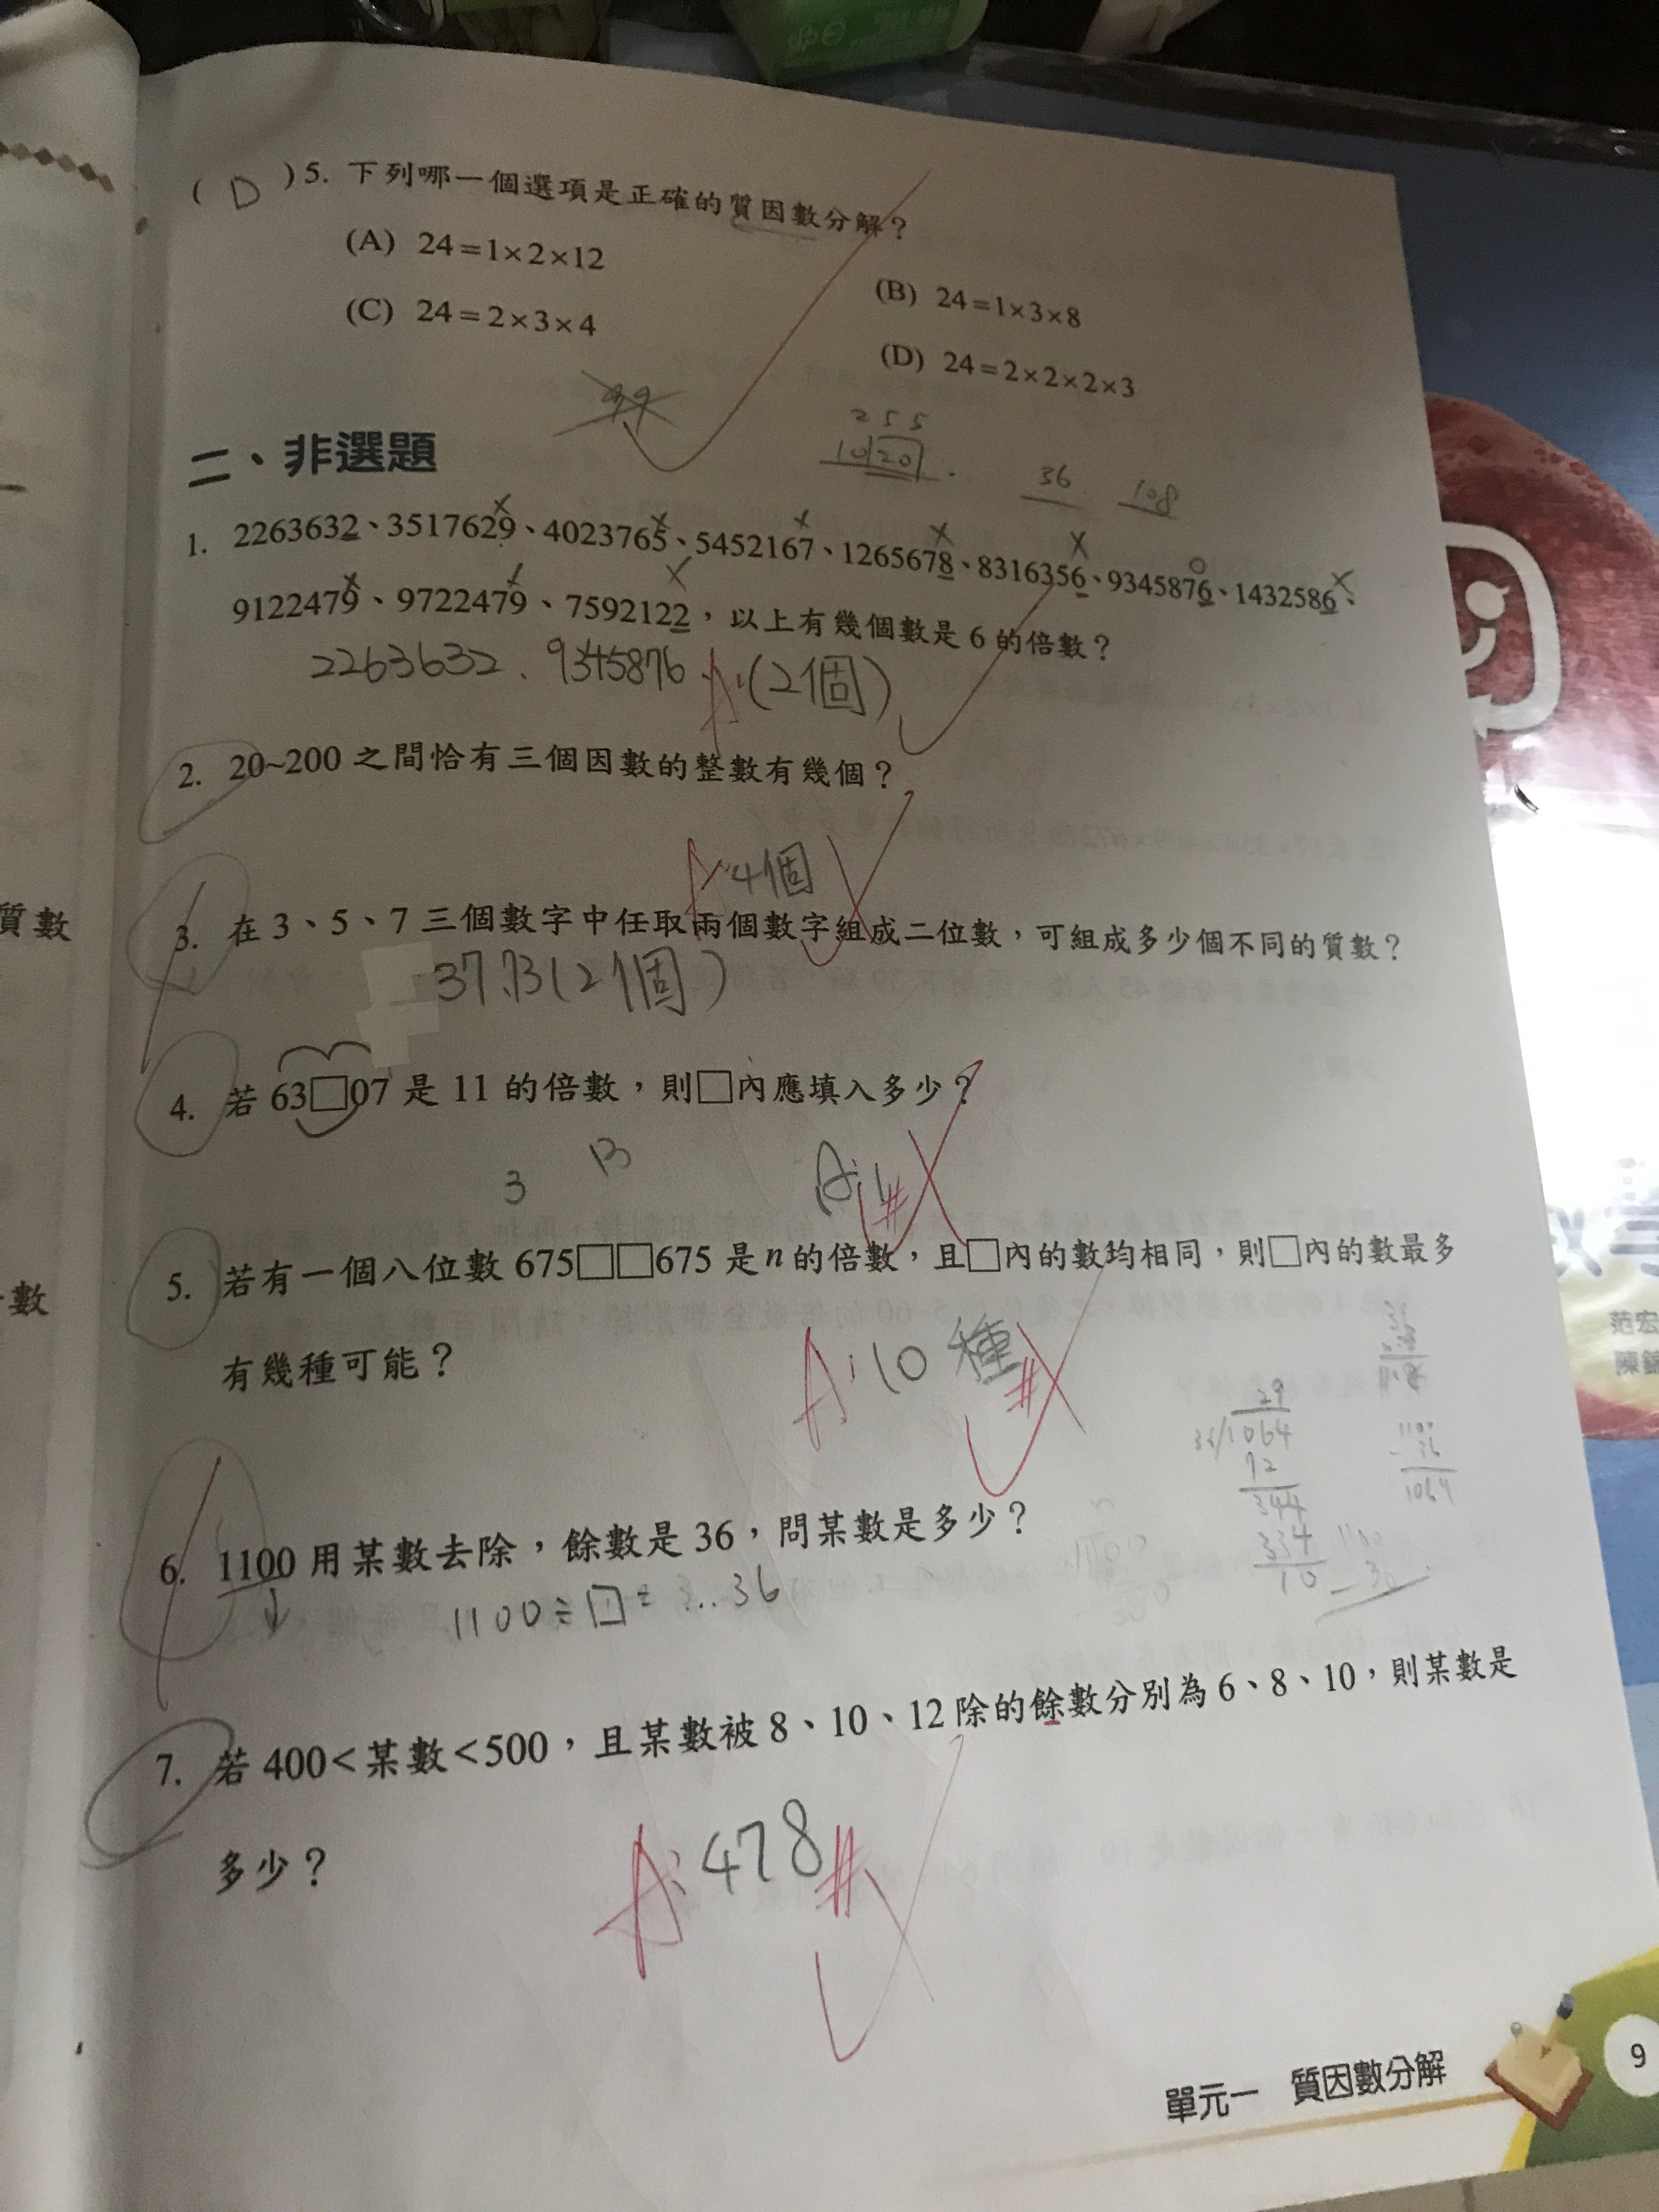 ( D )5. 下列哪一個選項是正確的質因數分解？
(A) 24=1×2×12
(B) 24=1×3×8
(C) 24=2×3×4
(D) 24=2×2×2×3
2 5 5
10 20
36 108
二、非選題
1. 2263632、3517629、4023765、5452167、1265678、8316356、9345876、1432586、
9122479、9722479、7592122，以上有幾個數是 6 的倍數？
2263632、9345876 A:(2個)
2. 20~200 之間恰有三個因數的整數有幾個？
A:4個
3. 在 3、5、7 三個數字中任取兩個數字組成二位數，可組成多少個不同的質數？
37.73(2個)
4. 若 63□07 是 11 的倍數，則□內應填入多少？
3 13 A:1#
5. 若有一個八位數 675□□675 是 n 的倍數，且□內的數均相同，則□內的數最多
有幾種可能？
A:10種#
29
1064
72
344
334
10
1100
36
1064
6. 1100 用某數去除，餘數是 36，問某數是多少？
1100÷□=?...36
7. 若 400<某數<500，且某數被 8、10、12 除的餘數分別為 6、8、10，則某數是
多少？
A:478#
單元一 質因數分解
9
質數
數
范宏
陳錦